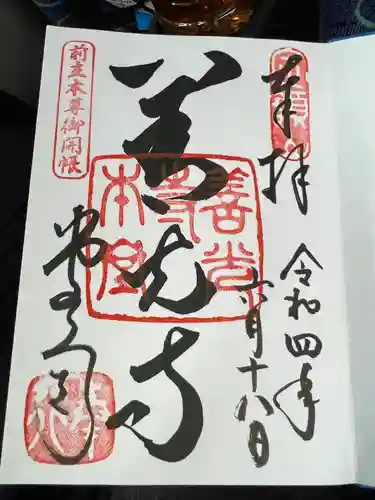 奉拝
令和四年
六月十八日
善光寺
善光寺本堂
前立本尊御開帳